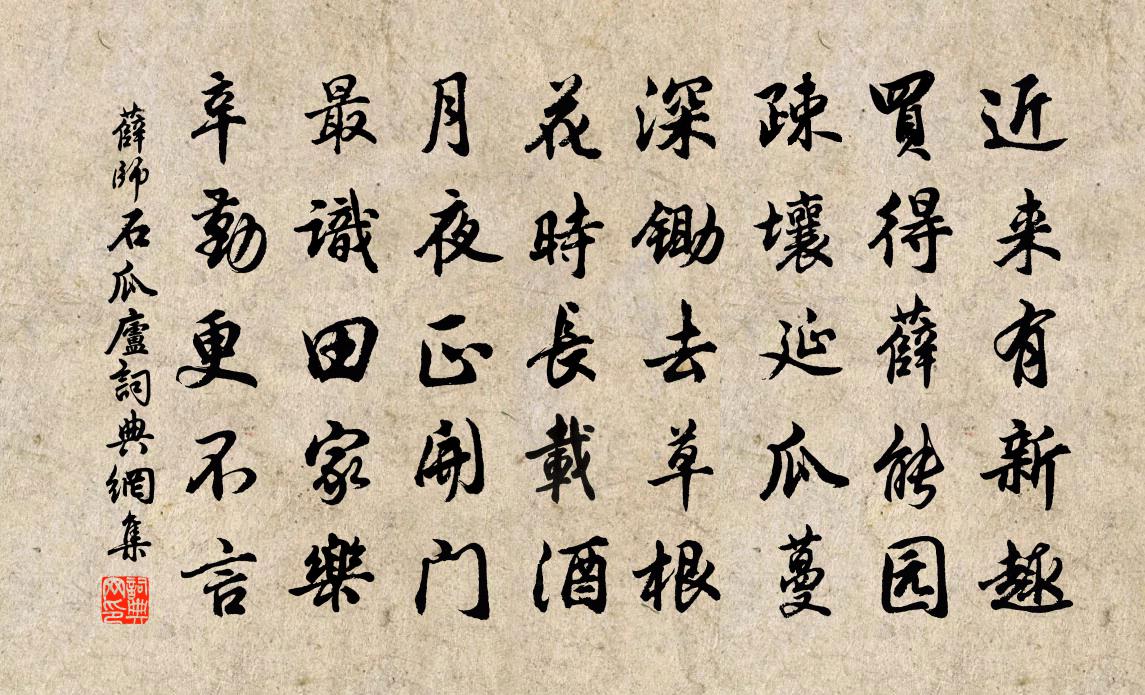 近来有新趣
買得薛能园
疎壤延瓜蔓
深鋤去草根
花時長載酒
月夜正開门
最識田家樂
辛勤更不言
薛師石瓜廬詞典網集
詞典网印